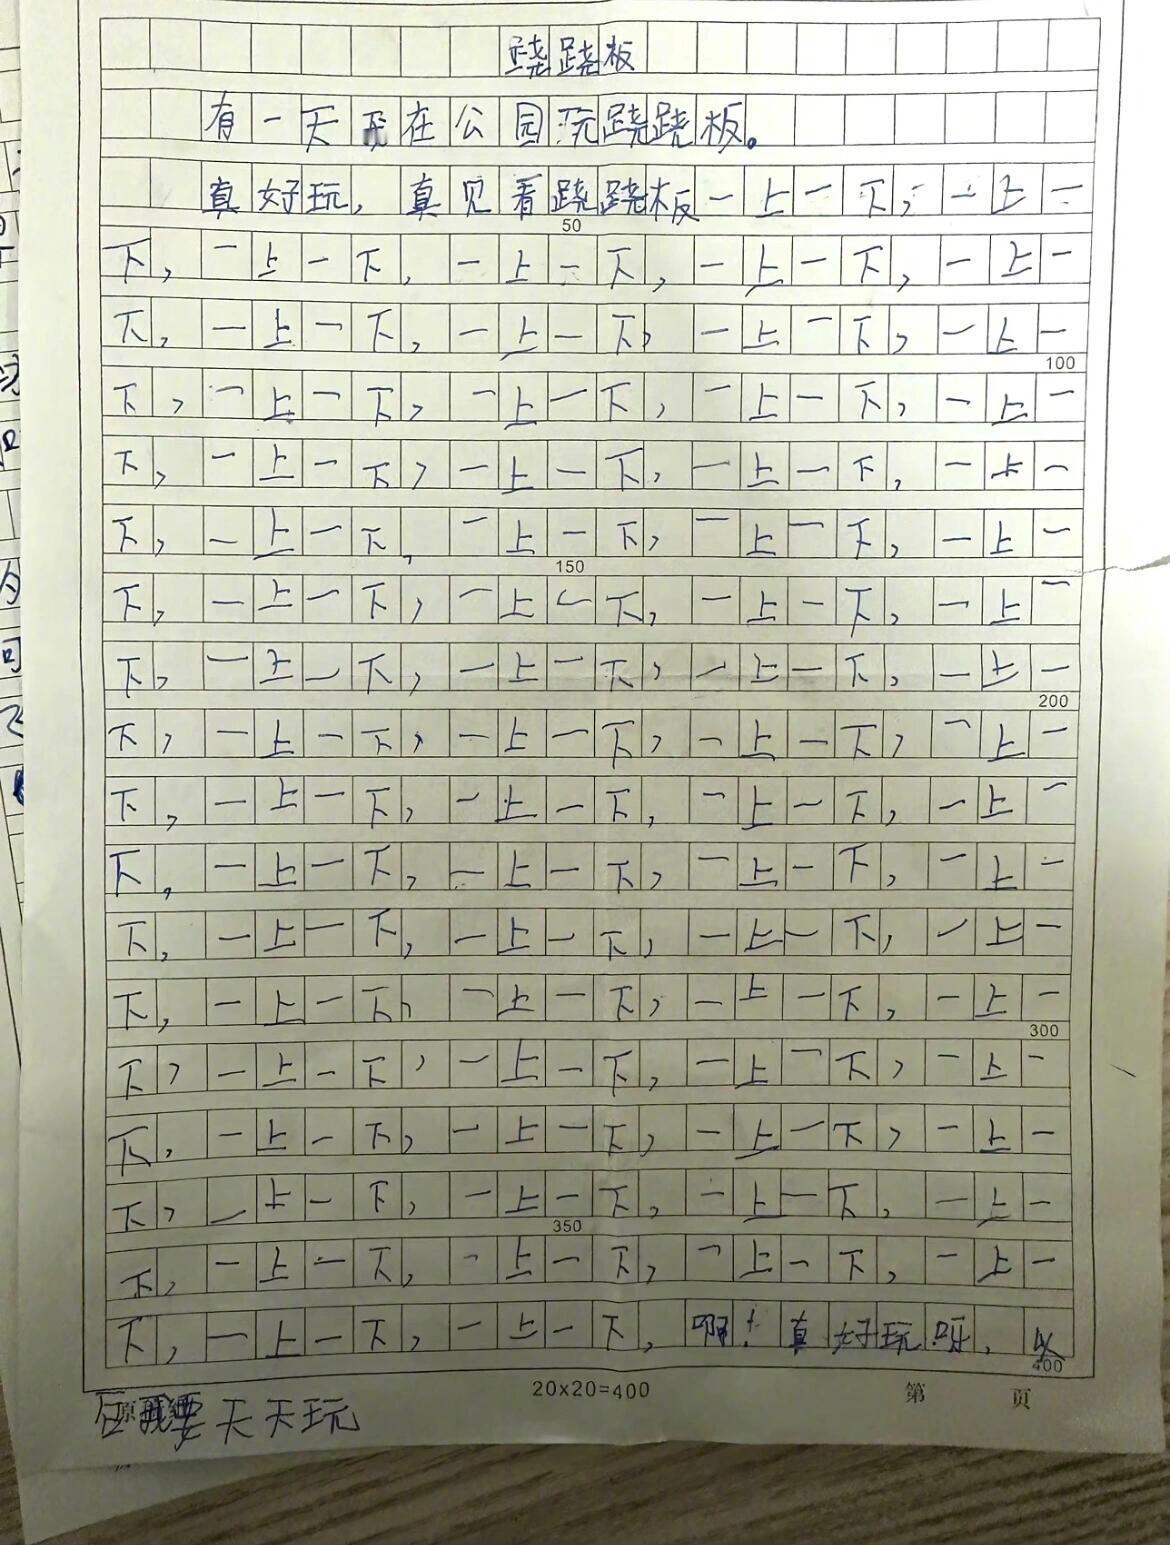 跷跷板
有一天我在公园玩跷跷板。
真好玩，真见看跷跷板一上一下，一上一
下，一上一下，一上一下，一上一下，一上一
下，一上一下，一上一下，一上一下，一上一
100
50
下，一上一下，一上一下，一上一下，一上一
下，一上一下，一上一下，一上一下，一上一
下，一上一下，一上一下，一上一下，一上一
150
下，一上一下，一上一下，一上一下，一上一
下，一上一下，一上一下，一上一下，一上一
200
下，一上一下，一上一下，一上一下，一上一
下，一上一下，一上一下，一上一下，一上一
下，一上一下，一上一下，一上一下，一上一
下，一上一下，一上一下，一上一下，一上一
下，一上一下，一上一下，一上一下，一上一
300
下，一上一下，一上一下，一上一下，一上一
下，一上一下，一上一下，一上一下，一上一
下，一上一下，一上一下，一上一下，一上一
350
下，一上一下，一上一下，一上一下，一上一
下，一上一下，一上一下，啊！真好玩呀，以
400
20x20=400 第 页
后我要天天玩